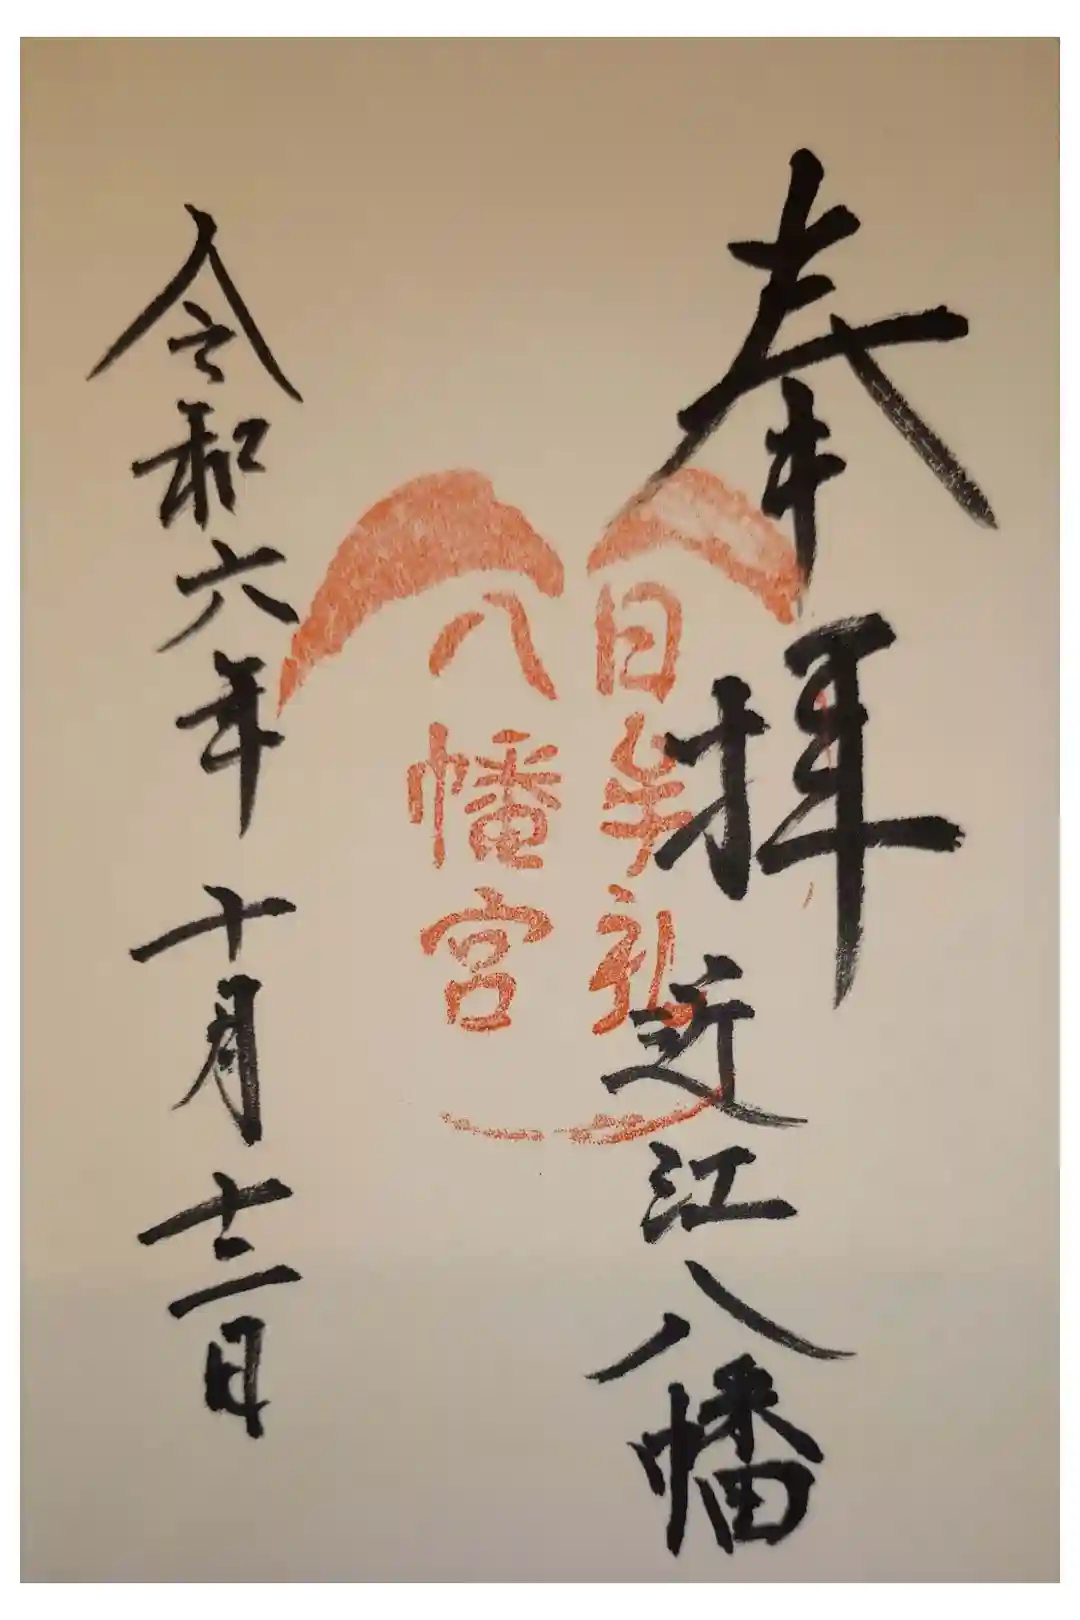 奉拝
近江八幡
日牟礼
八幡宮
令和六年 十月十二日